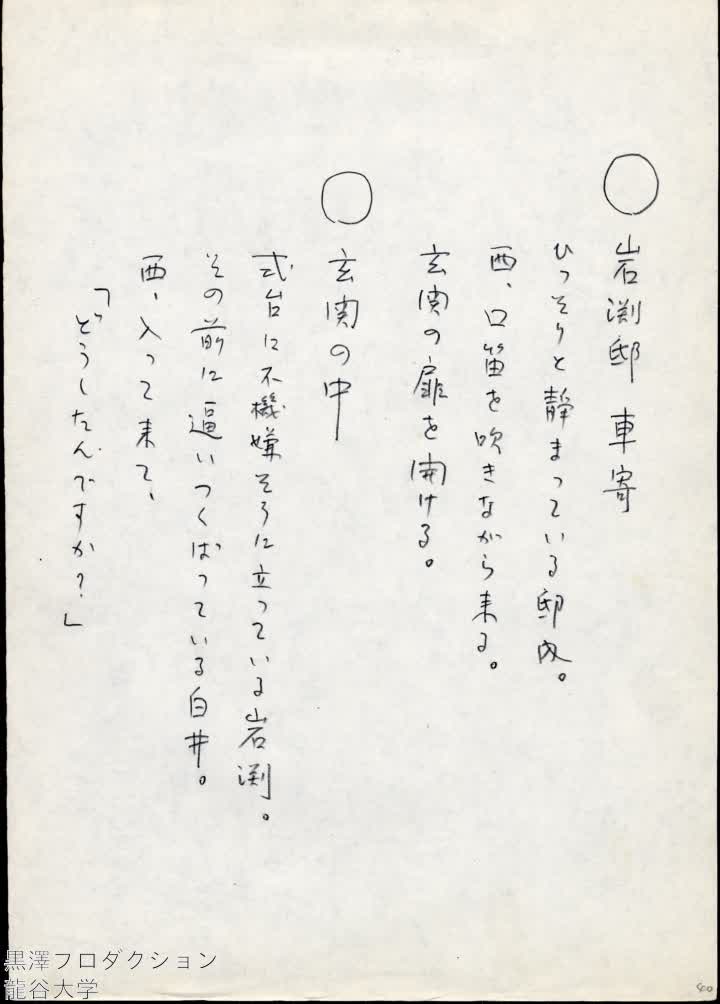 ○ 岩渕邸 車寄
ひっそりと静まっている邸内。
西、口笛を吹きながら来る。
玄関の扉を開ける。
○ 玄関の中
式台に不機嫌そうに立っている岩渕。
その前に這いつくばっている白井。
西、入って来て、
「どうしたんですか?」
黒澤プロダクション
龍谷大学